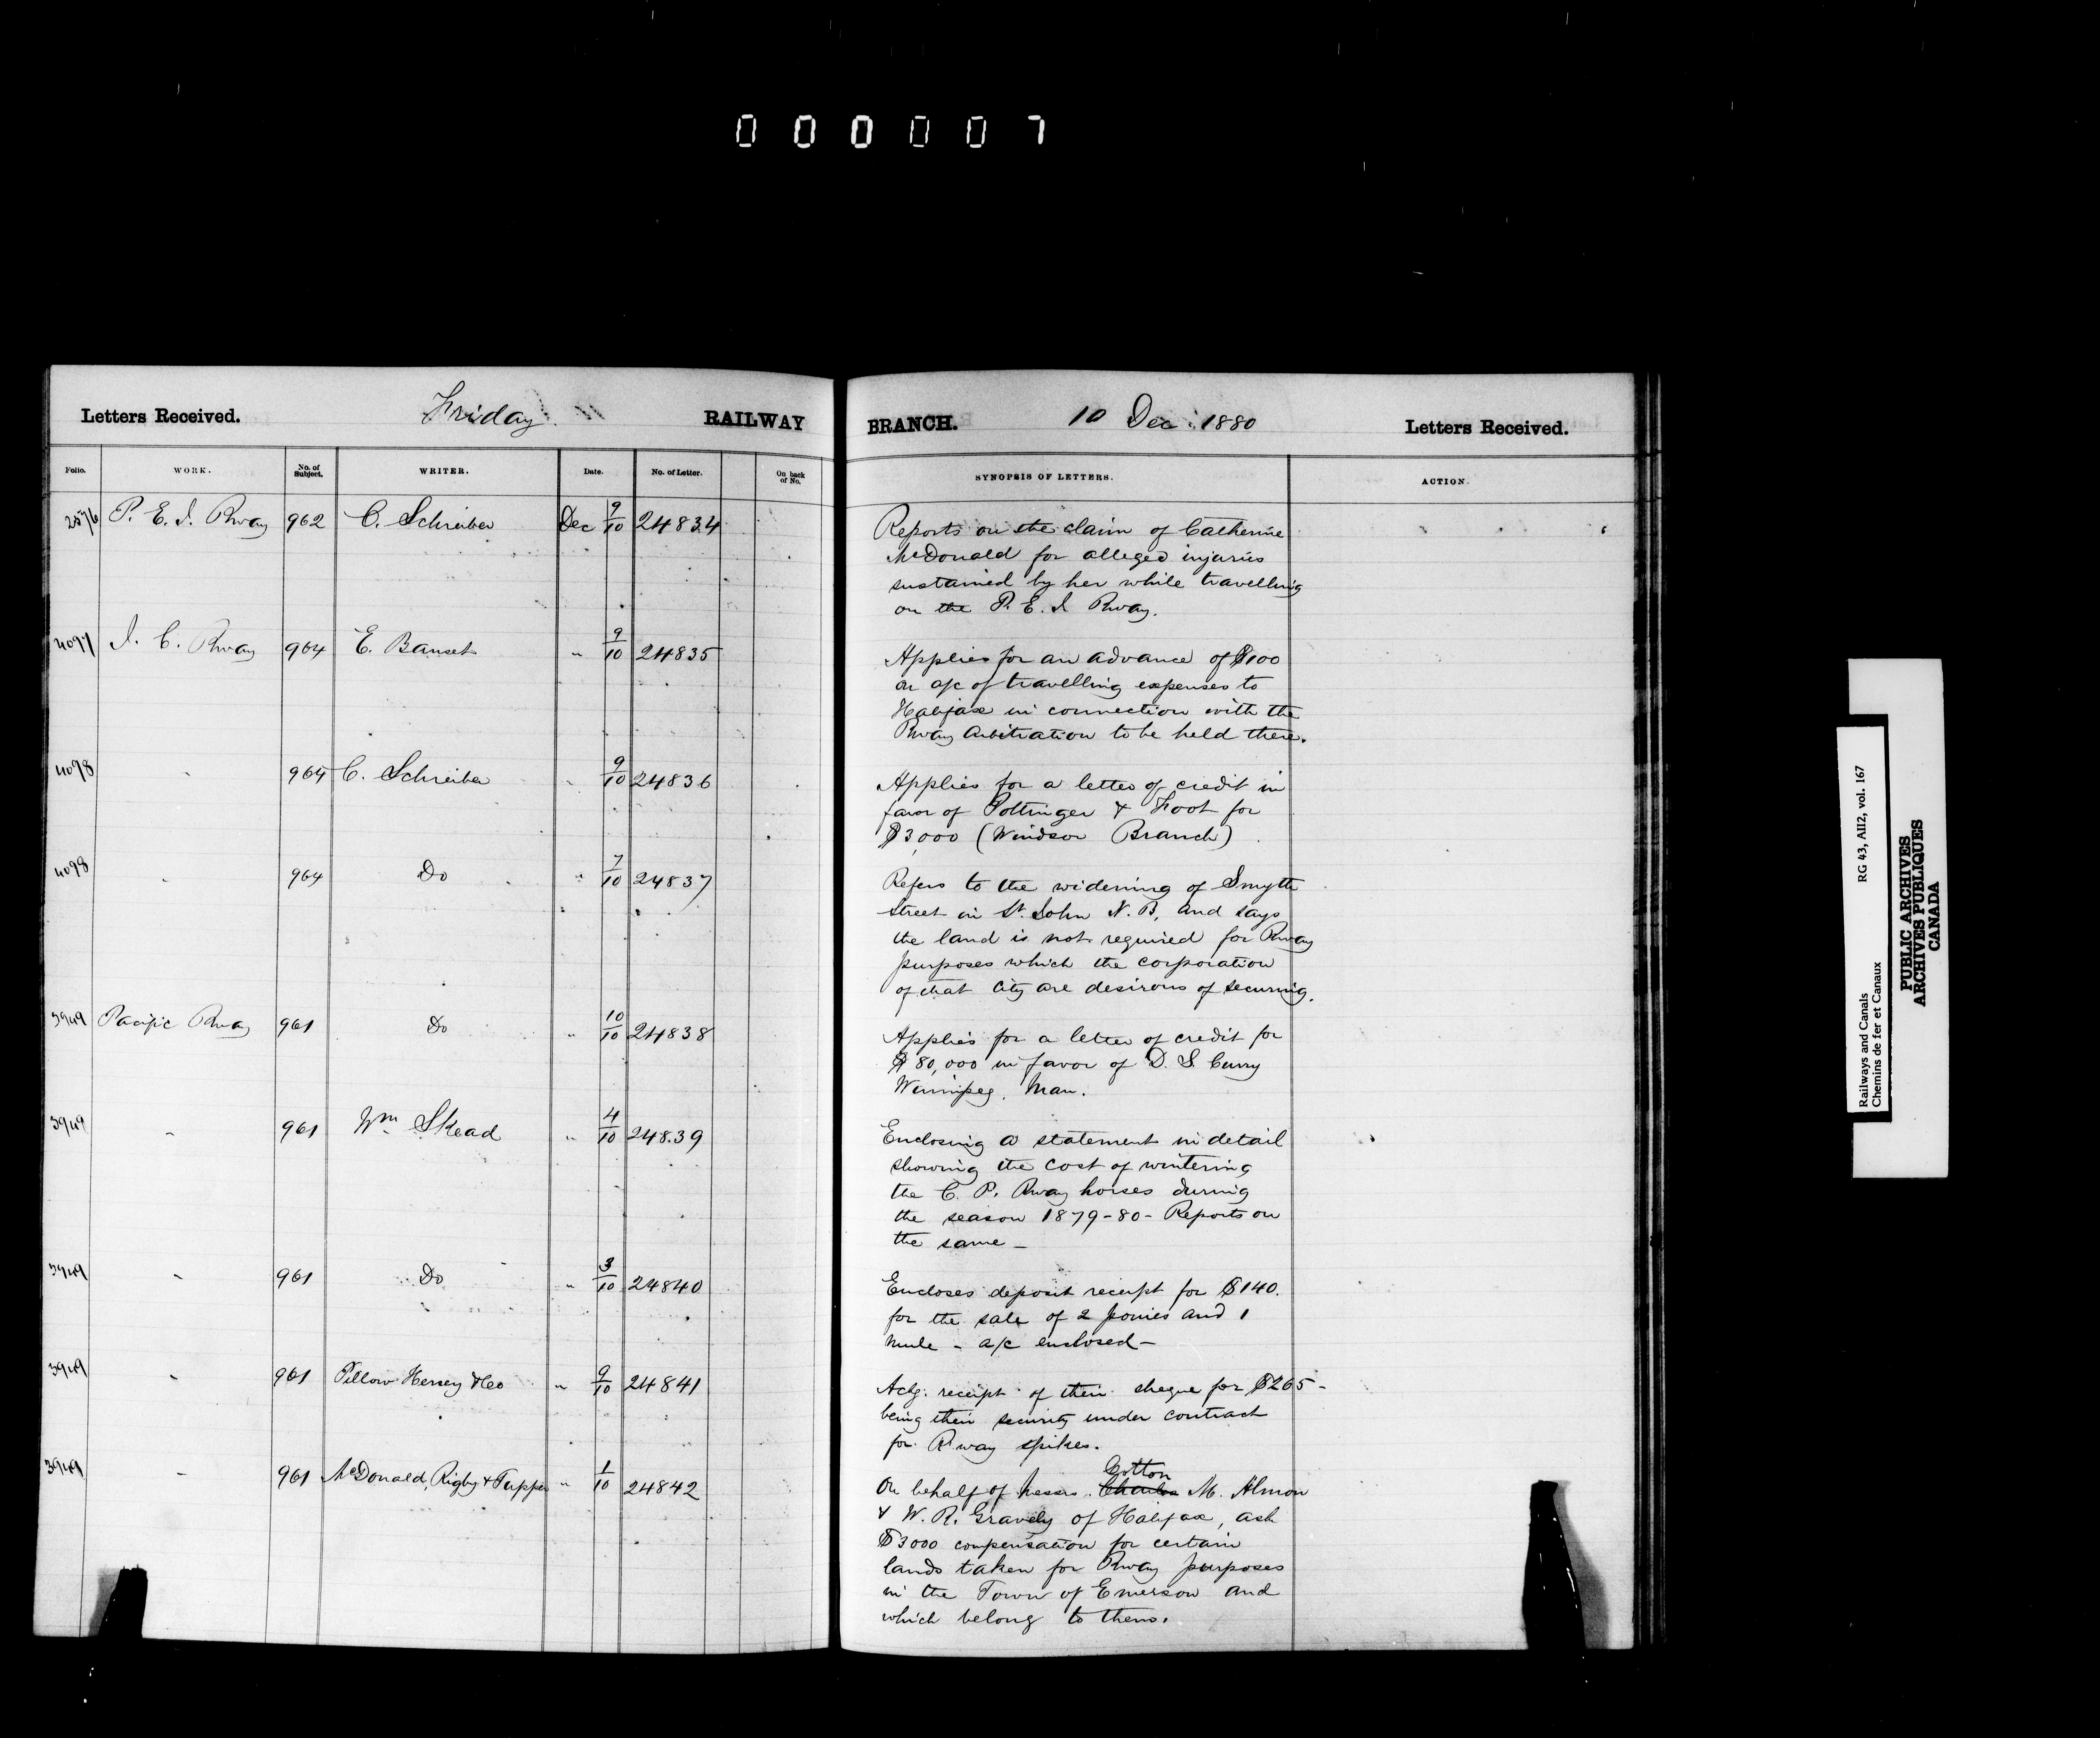 000007
Letters Received. Friday RAILWAY
BRANCH. 10 Dec. 1880 Letters Received.
Folio. WORK. No. of Subject. WRITER. Date. No. of Letter. On back of No.
SYNOPSIS OF LETTERS. ACTION.
2576 P. E. I. Rway 962 C. Schreiber Dec 9/10 24834
Reports on the claim of Catherine
McDonald for alleged injuries
sustained by her while travelling
on the P. E. I Rway.
4097 I. C. Rway 964 E. 9/10 24835
Applies for an advance of $100
on a/c of travelling expenses to
Halifax in connection with the
Rway Arbitration to be held there.
4098 " 964 C. Schreiber " 9/10 24836
Applies for a letter of credit in
favor of Pottinger & Foot for
$3,000 (Windsor Branch)
4098 " 964 Do " 7/10 24837
Refers to the widening of Smyth
Street in St. John N. B, and says
the land is not required for Rway
purposes which the corporation
of that City are desirous of securing.
3949 Pacific Rway 961 Do " 10/10 24838
Applies for a letter of credit for
$80,000 in favor of D. S. Curry
Winnipeg, Man.
3949 " 961 Wm Skead " 4/10 24839
Enclosing a statement in detail
showing the cost of wintering
the C. P. Rway horses during
the season 1879-80- Reports on
the same -
3949 " 961 Do " 3/10 24840
Encloses deposit receipt for $140.
for the sale of 2 ponies and 1
mule - a/c enclosed -
3949 " 961 Pillow Hersey & Co " 9/10 24841
Ackg. receipt of their cheque for $265 -
being their security under contract
for Rway spikes.
3949 " 961 McDonald, Rigby & Tupper " 1/10 24842
Cotton
On behalf of Messrs. Charles M. Almon
& W. R. Gravely of Halifax, ask
$3000 compensation for certain
lands taken for Rway purposes
in the Town of Emerson and
which belong to them.
Railways and Canals RG 43, AII2, vol. 167
Chemins de fer et Canaux
PUBLIC ARCHIVES
ARCHIVES PUBLIQUES
CANADA